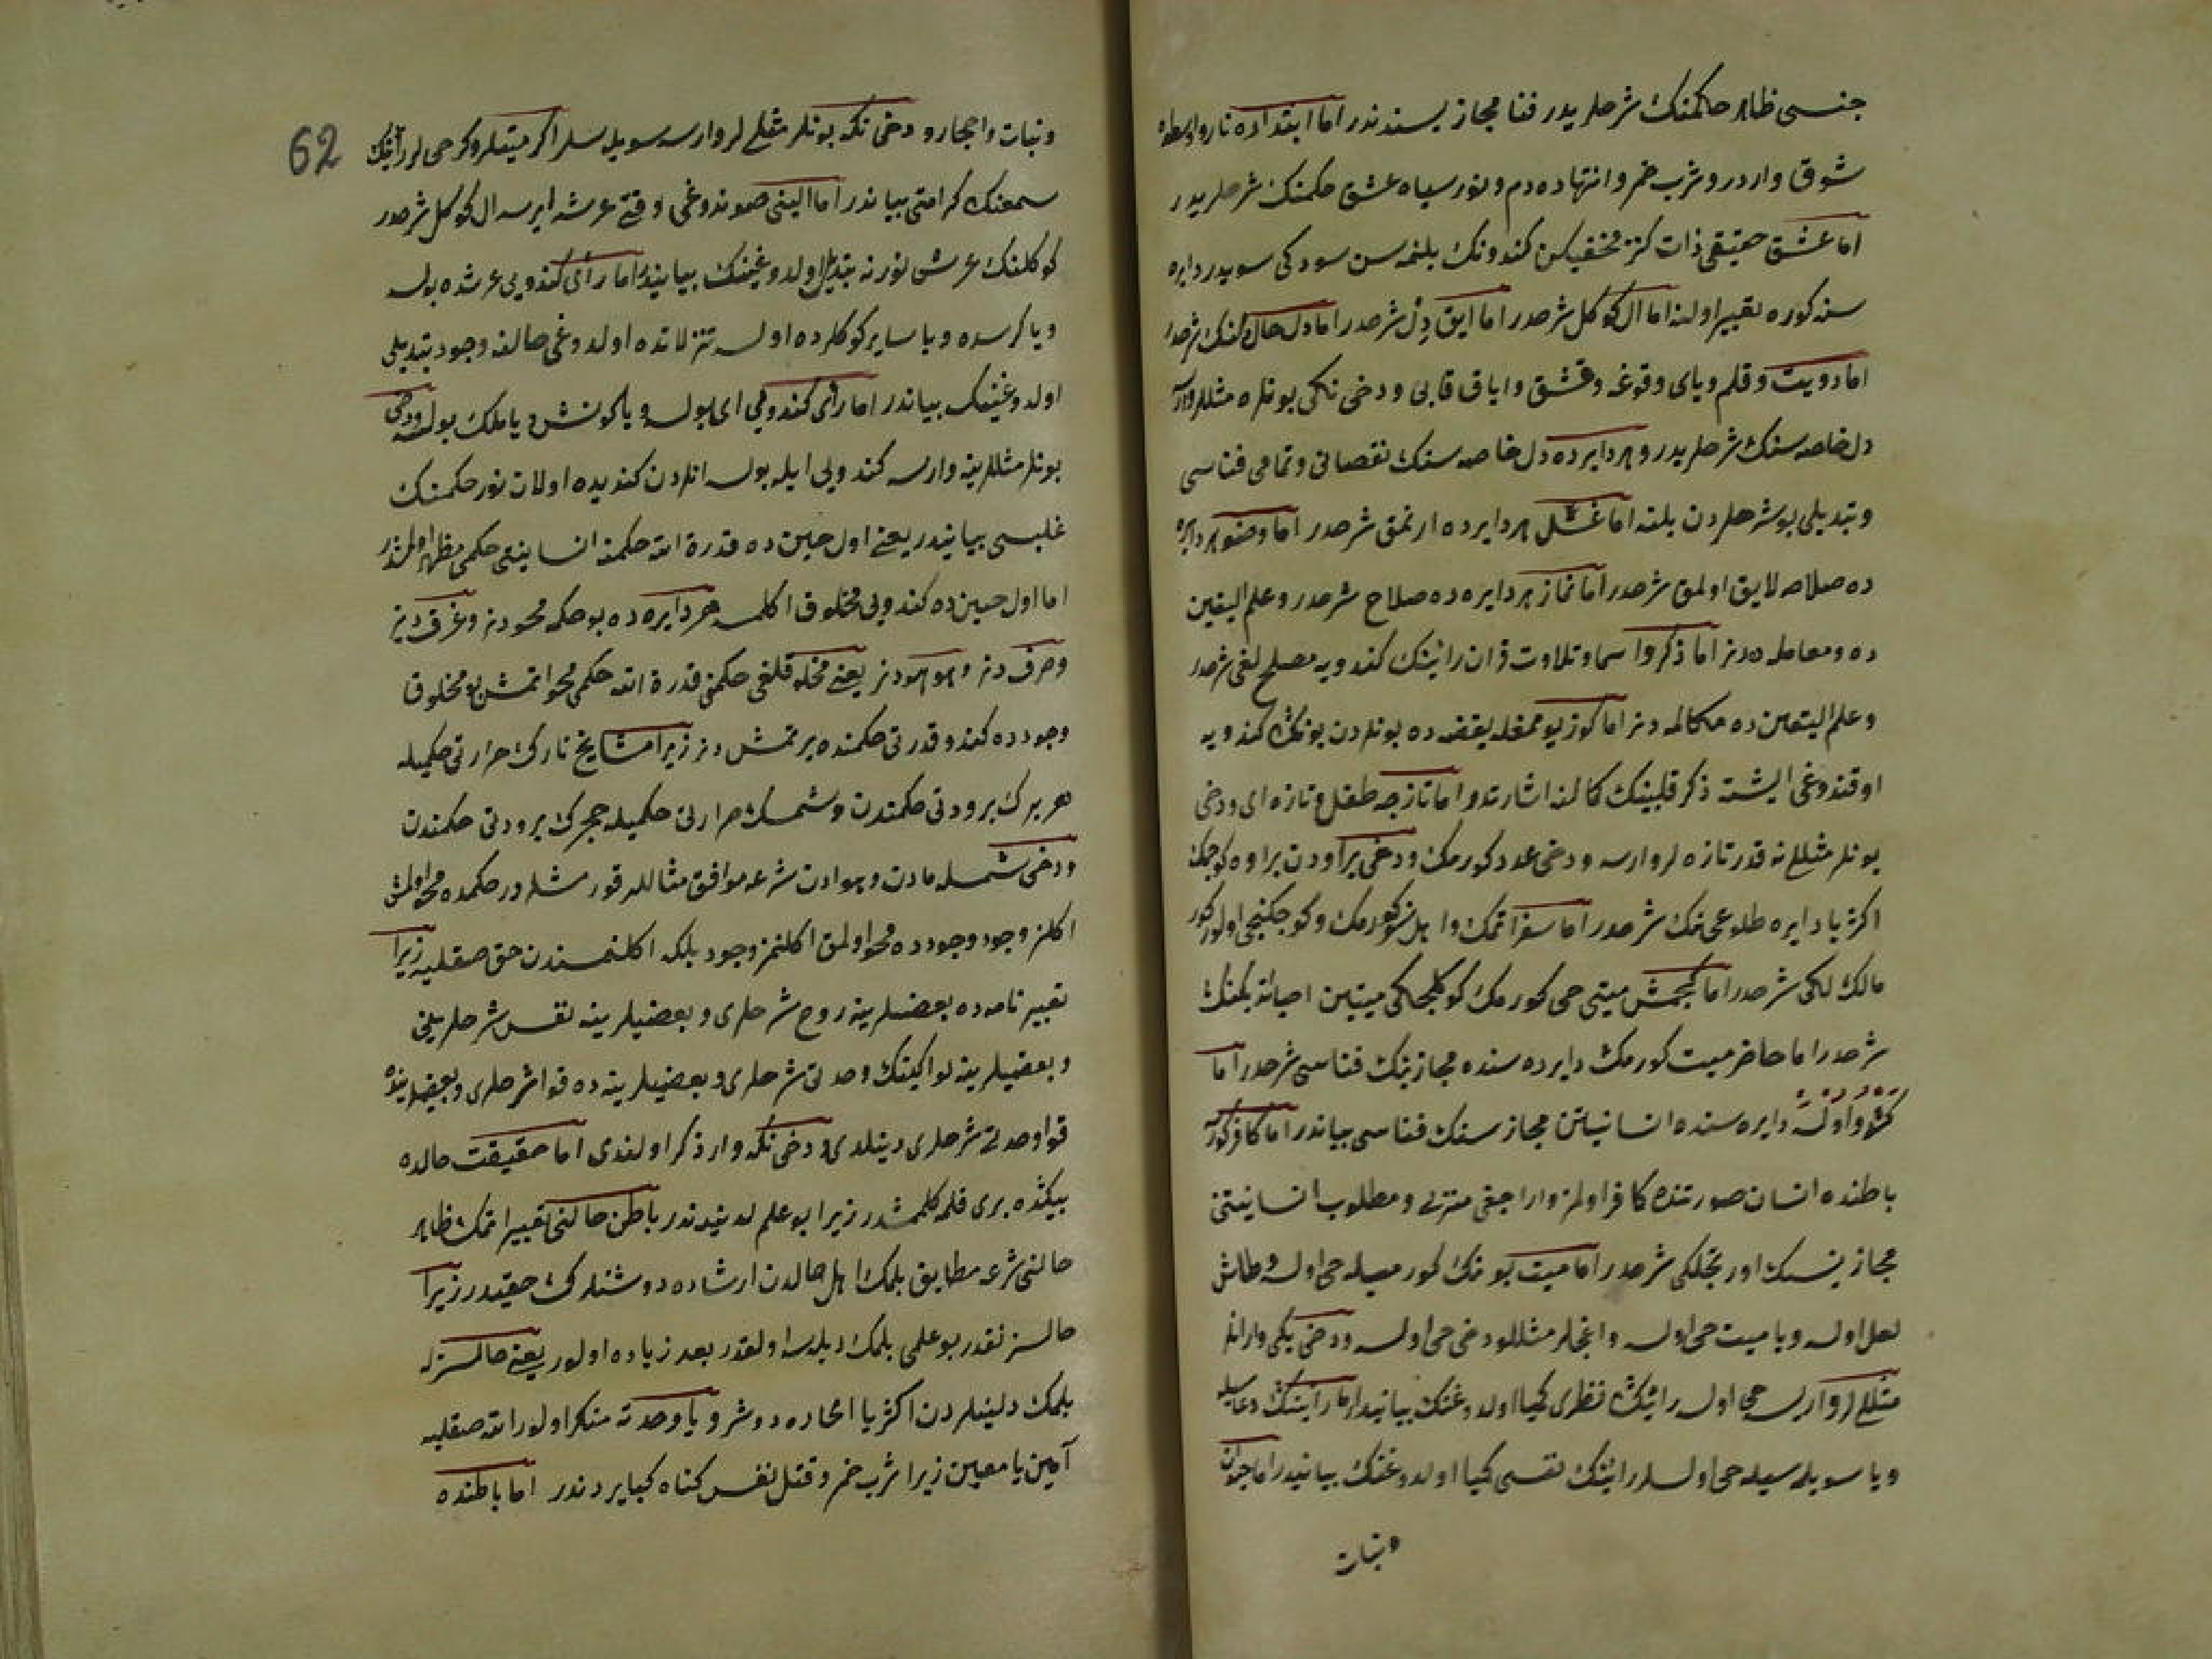 جنسی ظاهر حکمنك شرحلریدر فنا مجاز یسندندر اما ابتداده نار واسطه
شوق واردر و شرب خمر و انتهاده دم و نور سیاه عشق حکمنك شرحلریدر
اما عشق حقیقی ذات کنز مخفیکن کندونك بلنمه سن سودکی سویدر دایره
سنه کوره تعبیر اولنه اما ال کوکل شرحدر اما ایق دل شرحدر اما دل حال شرحدر
اما دویت و قلم و یای و قوغه و قشق و ایاق قابی و دخی نکی بونلره مثللر وار
دل خاصه سنك شرحلریدر و هر دایرده دل خاصه سنك نقصانی و تمامی فناسی
و تبدیلی بو شرحلردن بلنه اما غسل هر دایرده ارنمق شرحدر اما وضو هر دایره
ده صلاحه لایق اولمق شرحدر اما نماز هر دایره ده صلاح شرحدر و علم الیقین
ده و معامله ده دنر اما ذکر و اسما و تلاوت قران رائینك کندویه مصلح لغی شرحدر
و علم الیقین ده مکالمه دنر اما کوز یومغله یقظه ده بونلردن بونك کندویه
اوقندوغی ایشته ذکر قلبینك کمالنه اشارتدر اما تازجه طفل و تازه ای و دخی
بونلر مثللی نه قدر تازه لر وارسه و دخی عدد کورمك و دخی بر اودن بر اوه کوچمك
اکثریا دایره طلوعی نك شرحدر اما سفر اتمك و ابل کورمك و کوجکنجی اولور کور
مالك لکی شرحدر اما کچمش میتی حی کورمك کوکلجکی میتین احیا اتمکنك
شرحدر اما حاضر میت کورمك دایره سنده مجازینك فناسی شرحدر اما
دایره سنده انسانیاتن مجاز سنك فناسی بیاندر اما کافر کور
باطنده انسان صورتنده کافر اولمز واراجغی منزلی و مطلوب انسانیتنی
مجاز یسنك اورتجلکی شرحدر اما میت بونك کورمسیله حی اولسه و طاش
لعل اولسه و یا میت حی اولسه و اغجلر مثللو دخی حی اولسه و دخی نکی وارانه
مثللی لر وارسه حی اولسه رائینك نظری کیمیا اولدوغنك بیانیدر اما رائینك دعاسیله
و یا سویله سیله حی اولسه لر رائینك نفسی کیمیا اولدوغنك بیانیدر اما حیوان
و نبات
62
و نبات و احجار و دخی نکه بونلر مثللی لر وارسه سویله سلر اکر میتلر و کر حی لر رائینك
سمعنك کرامتی بیاندر اما الینی صوندوغی وقتی عرشه ایرسه ال کوکل شرحدر
کوکلنك عرشی نورنه تبدیل اولدوغینك بیانیدر اما رائی کندویی عرشده بولسه
و یا کرسده و یا سایر کوکلرده اولسه تنزلاتده اولدوغی حالنه وجود تبدیلی
اولدوغینك بیاندر اما رائی کندویی ای بولسه و یا کونش و یا ملك بولسه و دخی
بونلر مثللرینه وارسه کندویی ایله بولسه انلردن کندیده اولان نور حکمتنك
غلبسی بیانیدر یعنی اول حین ده قدرة الله حکمنه انسانیتی حکمی مظهر اولمشدر
اما اول حین ده کندویی مخلوق اکلسه هر دایره ده بو حکمه محو دنر و غرق دنر
و صرف دنر و هو هو دنر یعنی مخلوقلغی حکمنی قدرة الله حکمی محو اتمش بو مخلوقا
وجودده کندو قدرتی حکمنده یرتمش دنر زیرا مشایخ نارك حرارتی حکمیله
هر برك برودتی حکمندن و شمسك حرارتی حکمیله حجرك برودتی حکمندن
و دخی شمسله مادن و هوادن شرعه موافق مثاللر قورمشلردر حکمده محو اولمش
اکلنر وجود وجودده محو اولمق اکلنمز وجود بلکه اکلنمسندن حق صقلیه زیرا
تعبیرنامه ده بعضیلرینه روح شرحلری و بعضیلرینه نفس شرحلرینی
و بعضیلرینه بو ایکینك وحدتی شرحلری و بعضیلرینه ده قوا شرحلری و بعضیلرینه
قوا وحدتی شرحلری دینلدی و دخی نکه وار ذکر اولندی اما حقیقت حالده
بیکده بری قلمه کلمشدر زیرا بو علم لدنیدندر باطن حالنی تعبیر اتمك ظاهر
حالنی شرعه مطابق بلمك اهل حالدن ارشاده دوشنلرك حقیدر زیرا
حالسز نقدر بو علمی بلمك دیلرسه اولقدر بعد زیاده اولور یعنی حالسزله
بلمك دلینلردن اکثریا الحاده دوشر و یا وحدته منکر اولور الله صقلیه
آمین یا معین زیرا شرب خمر و قتل نفس کناه کبایردندر اما باطنده